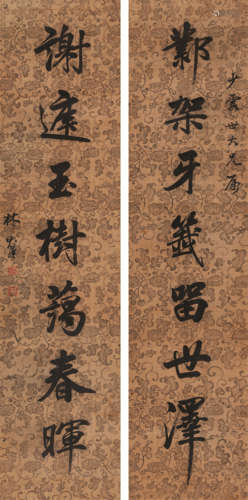 少霞世大兄属
鄴架牙籤留世澤
謝庭玉樹藹春暉
林